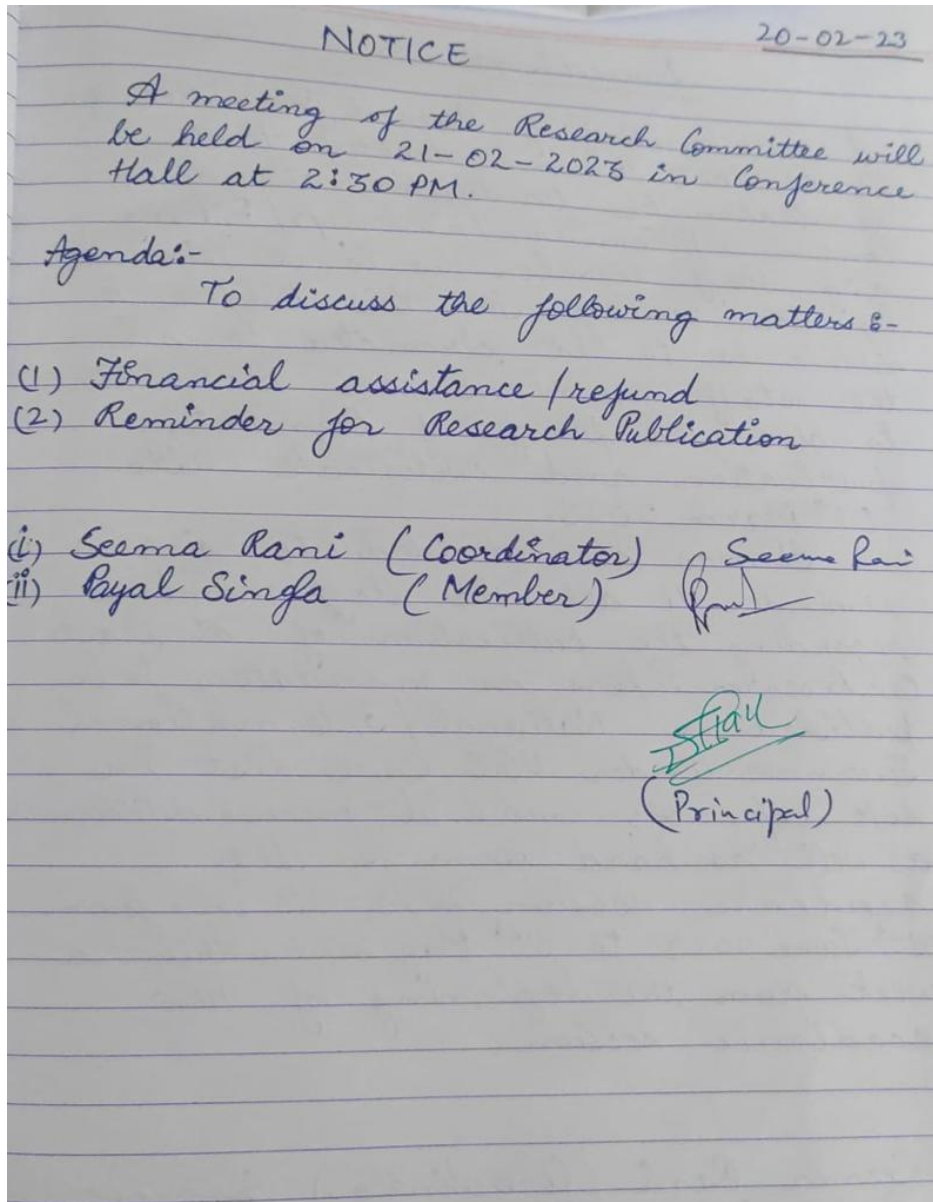 NOTICE
20-02-23
A meeting of the Research Committee will
be held on 21-02-2023 in Conference
Hall at 2:30 PM.
Agenda:-
To discuss the following matters :-
(1) Financial assistance/refund
(2) Reminder for Research Publication
(i) Seema Rani (Coordinator) Seema Rani
(ii) Payal Singla (Member)
(Principal)